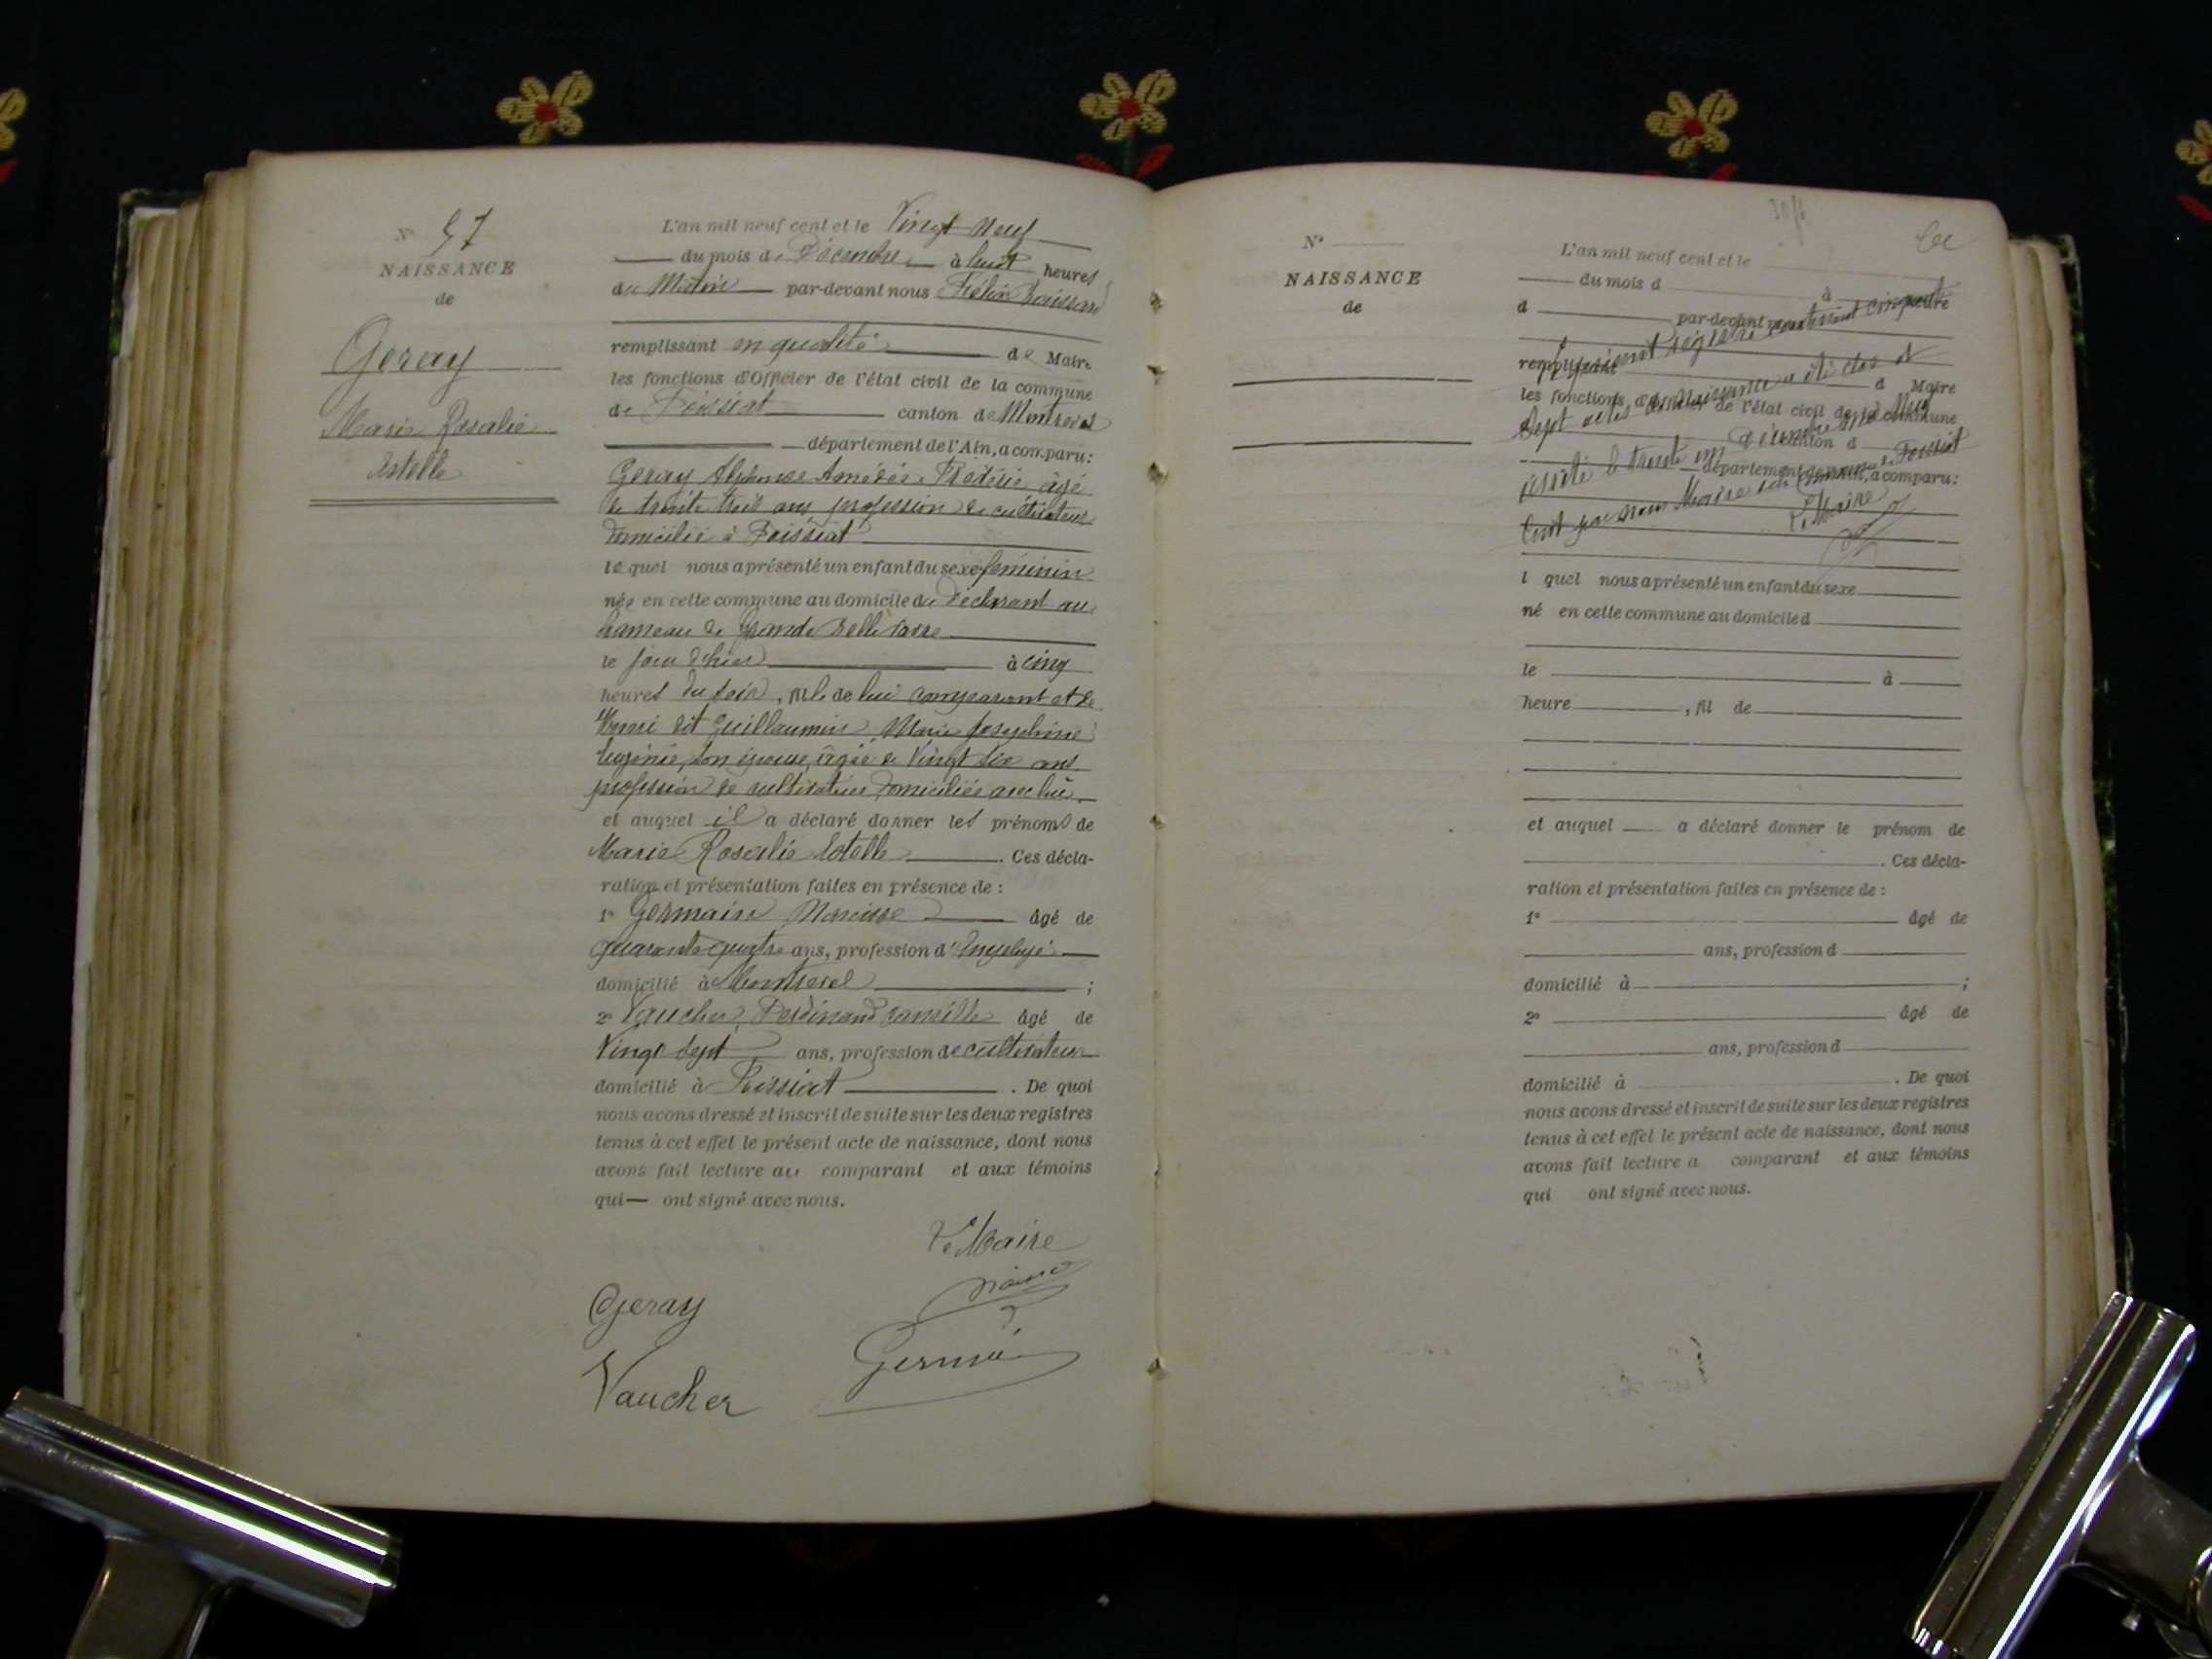 N° 57
NAISSANCE
de
Geray
Marie Rosalie
Estelle
L'an mil neuf cent et le Vingt Neuf
du mois de Décembre à huit heures
du Matin par-devant nous
remplissant en qualité de Maire
les fonctions d'Officier de l'état civil de la commune
de Foissiat canton de Montrevel
département de l'Ain, a comparu :
Geray Alphonse Amédée Frédéric âgé
de trente trois ans profession de cultivateur
domicilié à Foissiat
lequel nous a présenté un enfant du sexe féminin
née en cette commune au domicile du déclarant au
hameau de Grande
le jour d'hier à cinq
heures du soir, fille de lui comparant et de
dit Guillaumin Marie Josephine
Eugénie, son épouse, âgée de Vingt six ans
profession de cultivatrice domiciliée avec lui
et auquel il a déclaré donner les prénoms de
Marie Rosalie Estelle. Ces décla-
ration et présentation faites en présence de :
1° Germain Narcisse âgé de
quarante quatre ans, profession d'Employé
domicilié à Montrevel ;
2° Vaucher Ferdinand Camille âgé de
Vingt sept ans, profession de cultivateur
domicilié à Foissiat. De quoi
nous avons dressé et inscrit de suite sur les deux registres
tenus à cet effet le présent acte de naissance, dont nous
avons fait lecture au comparant et aux témoins
qui ont signé avec nous.
Le Maire
Geray
Germain
Vaucher
N°
NAISSANCE
de
L'an mil neuf cent et le
du mois d à heure
d par-devant nous
Le présent registre contenant cinquante
remplissant d Maire
Sept actes de naissance a été clos et
les fonctions d'Officier de l'état civil de la commune
d canton d
arrêté le trente un Décembre mil Neuf
département de l'Ain, a comparu :
Cent par nous Maire de la Commune de Foissiat
Le Maire
l quel nous a présenté un enfant du sexe
né en cette commune au domicile d
le à
heure , fil de
et auquel a déclaré donner le prénom de
. Ces décla-
ration et présentation faites en présence de :
1° âgé de
ans, profession d
domicilié à ;
2° âgé de
ans, profession d
domicilié à . De quoi
nous avons dressé et inscrit de suite sur les deux registres
tenus à cet effet le présent acte de naissance, dont nous
avons fait lecture a comparant et aux témoins
qui ont signé avec nous.